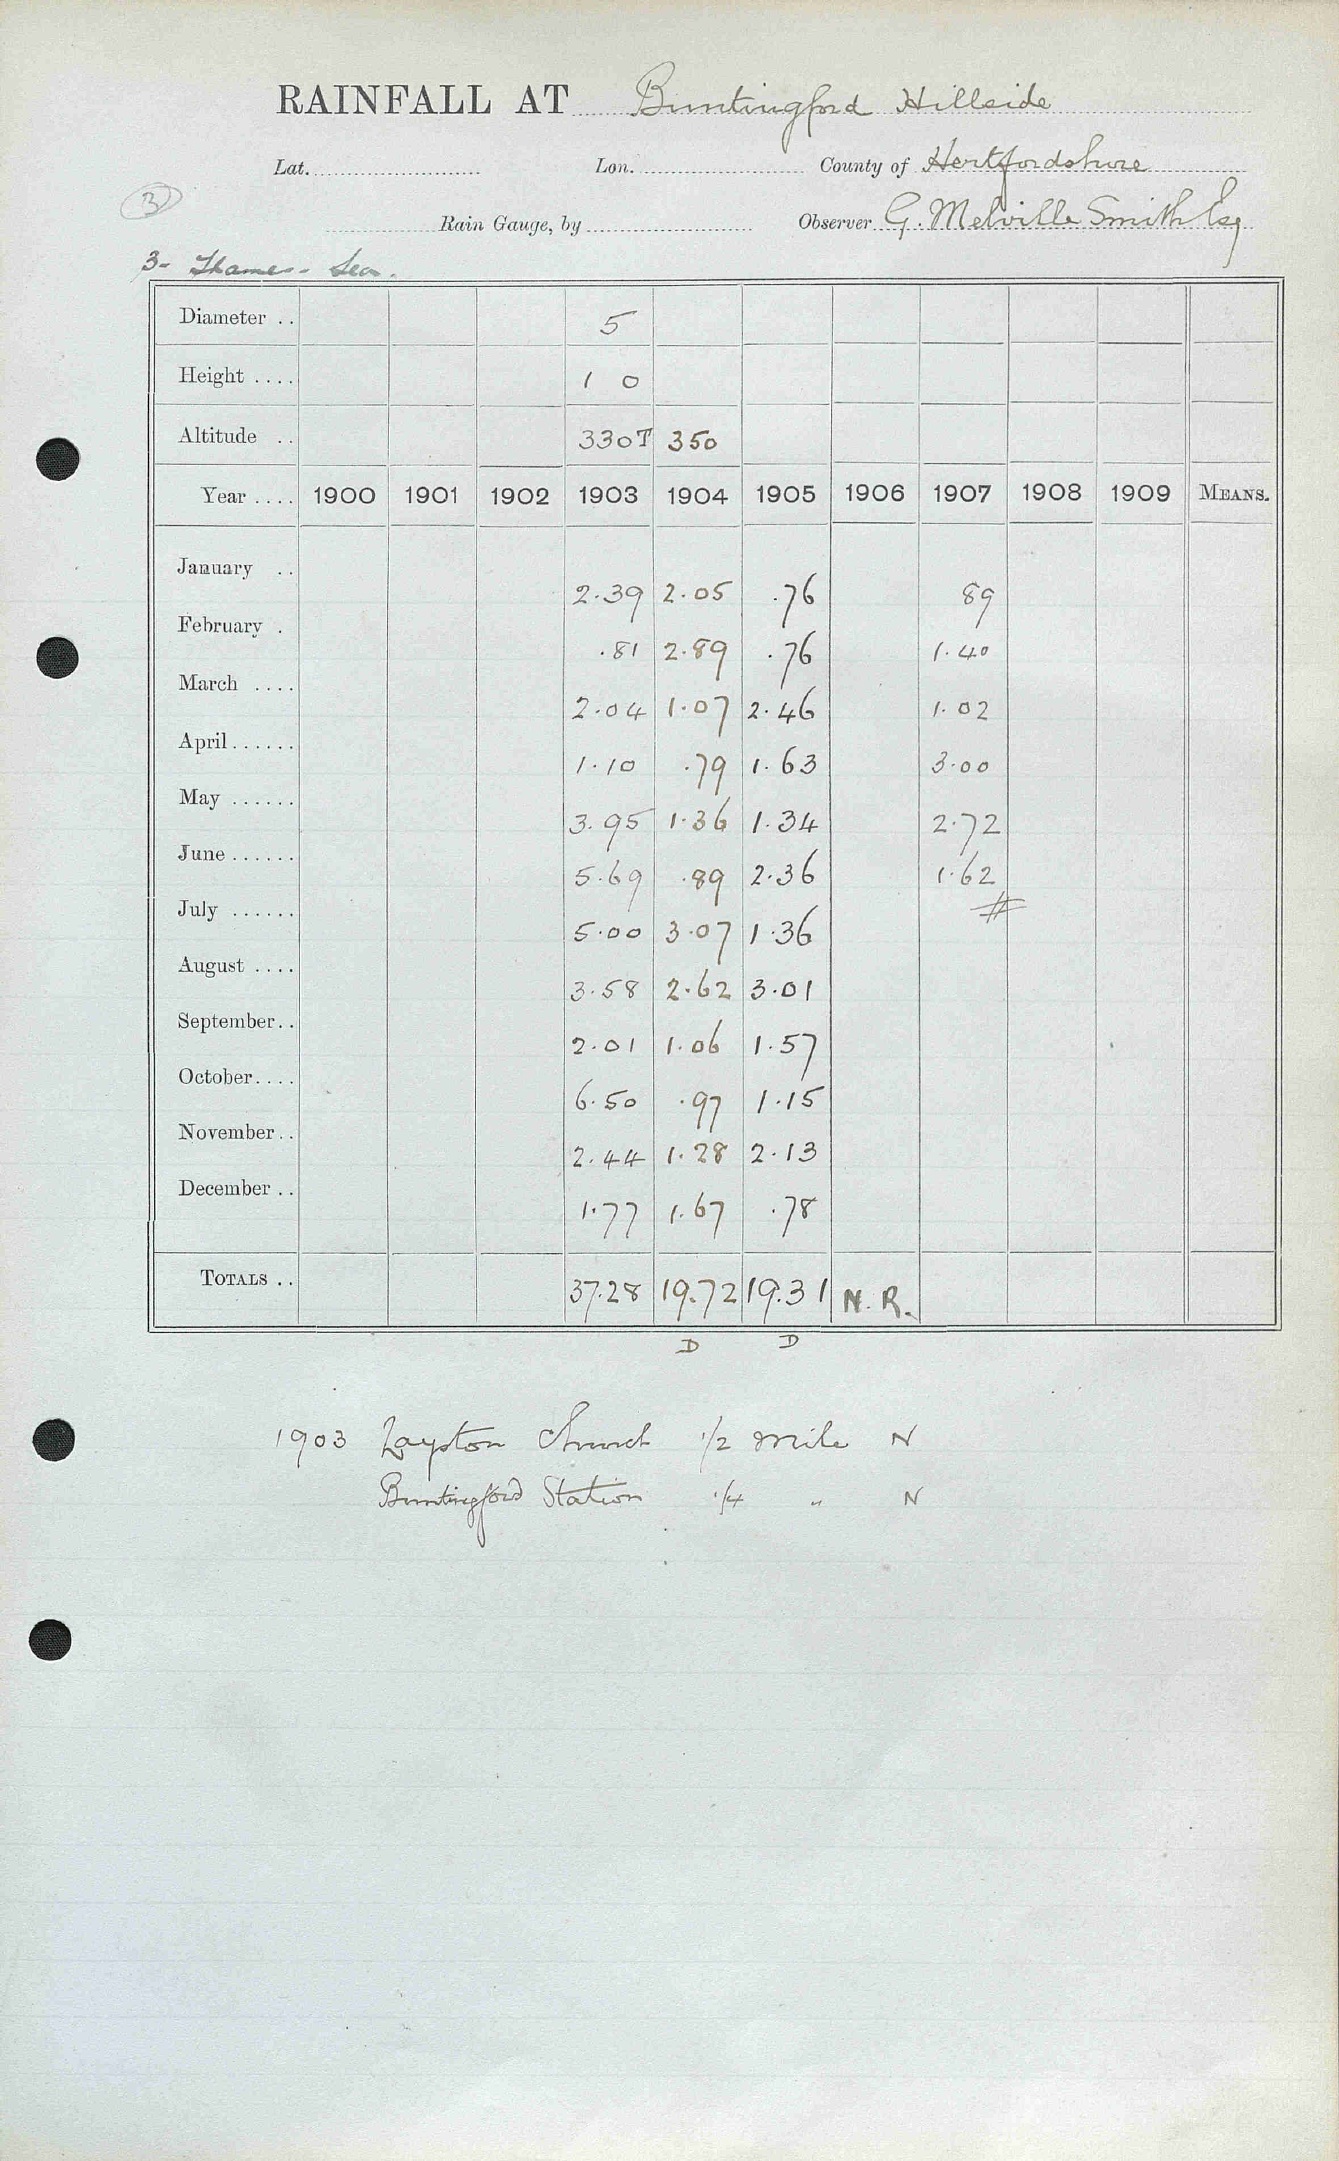 RAINFALL AT Buntingford Hillside
Lat. Lon. County of Hertfordshire
3
Rain Gauge, by Observer G. Melville Smith Esq
3- Thames - Lea.
Diameter .. 5
Height .... 1 0
Altitude .. 330T 350
Year .... 1900 1901 1902 1903 1904 1905 1906 1907 1908 1909 MEANS.
January .. 2.39 2.05 .76 89
February . .81 2.89 .76 1.40
March .... 2.04 1.07 2.46 1.02
April ...... 1.10 .79 1.63 3.00
May ...... 3.95 1.36 1.34 2.72
June ...... 5.69 .89 2.36 1.62
July ...... 5.00 3.07 1.36
August .... 3.58 2.62 3.01
September.. 2.01 1.06 1.57
October.... 6.50 .97 1.15
November.. 2.44 1.28 2.13
December .. 1.77 1.67 .78
TOTALS .. 37.28 19.72 19.31 N.R.
D D
1903 Layston Church 1/2 mile N
Buntingford Station 1/4 " N